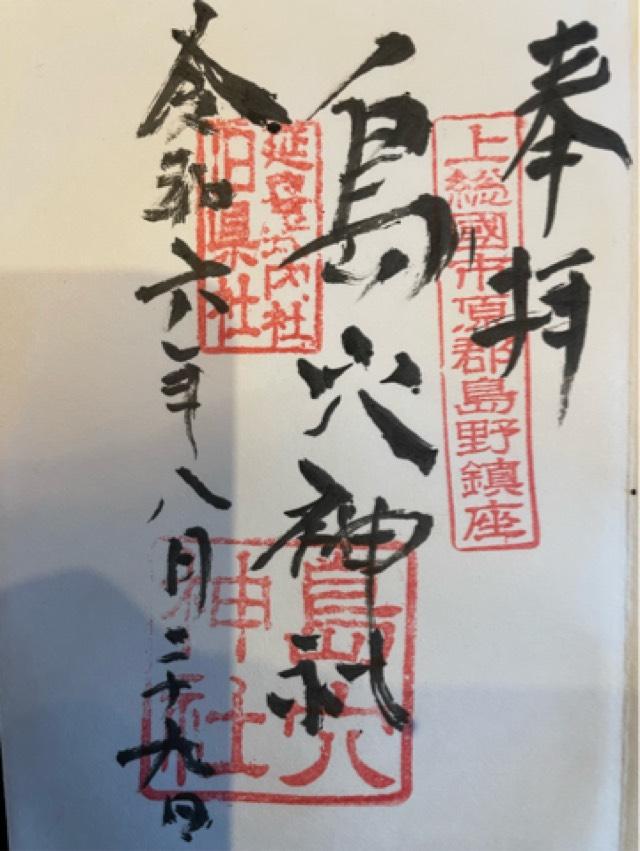 奉拝
上総國市原郡島野鎮座
島穴神社
延喜式内社
旧県社
島穴
神社
令和六年八月二十九日